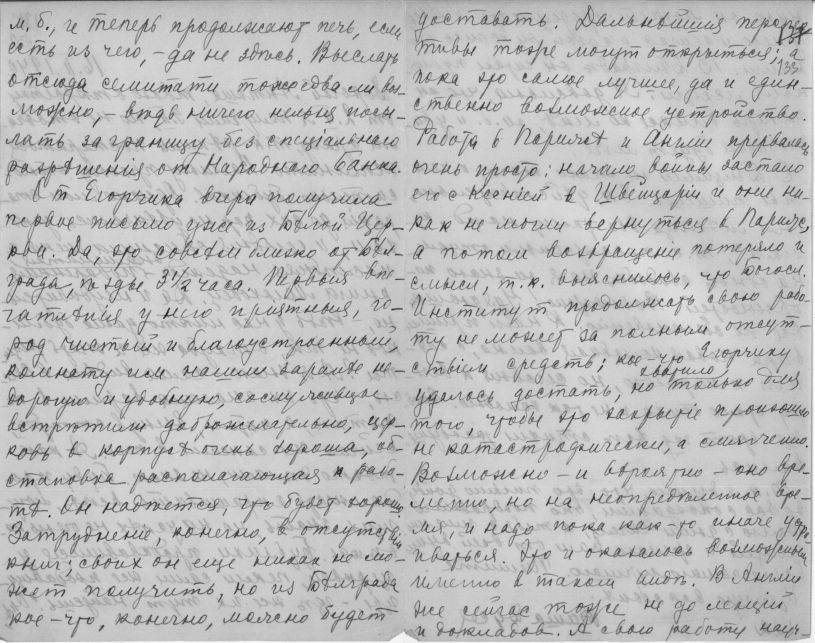 м. б., и теперь продолжают печь, если
есть из чего, – да не здѣсь. Выслать
отсюда семитати тоже едва ли воз-
можно, – вѣдь ничего нельзя посы-
лать за границу без спецiальнаго
разрѣшенiя от Народнаго Банка.
От Егорчика вчера получила
первое письмо уже из Бѣлой Цер-
кви. Да, это совсѣм близко от Бѣл-
града, поѣзде 3 1/2 часа. Первыя впе-
чатлѣнiя у него прiятныя, го-
род чистый и благоустроенный,
комнату им нашли заранѣе не-
дорогую и удобную, сослуживцы
встрѣтили доброжелательно, цер-
ковь в корпусѣ очень хороша, об-
становка располагающая к рабо-
тѣ. Он надѣется, что будет хорошо.
Затрудненiе, конечно, в отсутствiи
книг; своих он еще никак не мо-
жет получить, но из Бѣлграда
кое-что, конечно, можно будет
доставать. Дальнѣйшiя перспек-
тивы тоже могут открыться; а
133
пока это самое лучшее, да и един-
ственно возможное устройство.
Работа в Парижѣ и Англiи прервалась
очень просто: начало войны застало
его с Ксенiей в Швейцарiи и они ни-
как не могли вернуться в Париж,
а потом возвращенiе потеряло и
смысл, т. к. выяснилось, что Богосл.
Институт продолжать свою рабо-
ту не может за полным отсут-
ствiем средств; кое-что Егорчику
удалось достать, но хватило только для
того, чтобы это закрытiе произошло
не катастрофически, а смягченно.
Возможно – и вѣроятно – оно вре-
менно, но на неопредѣленное вре-
мя, и надо пока как-то иначе устра-
иваться. Это и оказалось возможным
именно в таком видѣ. В Англiи
же сейчас тоже не до лекцiй
и докладов. А свою работу науч-